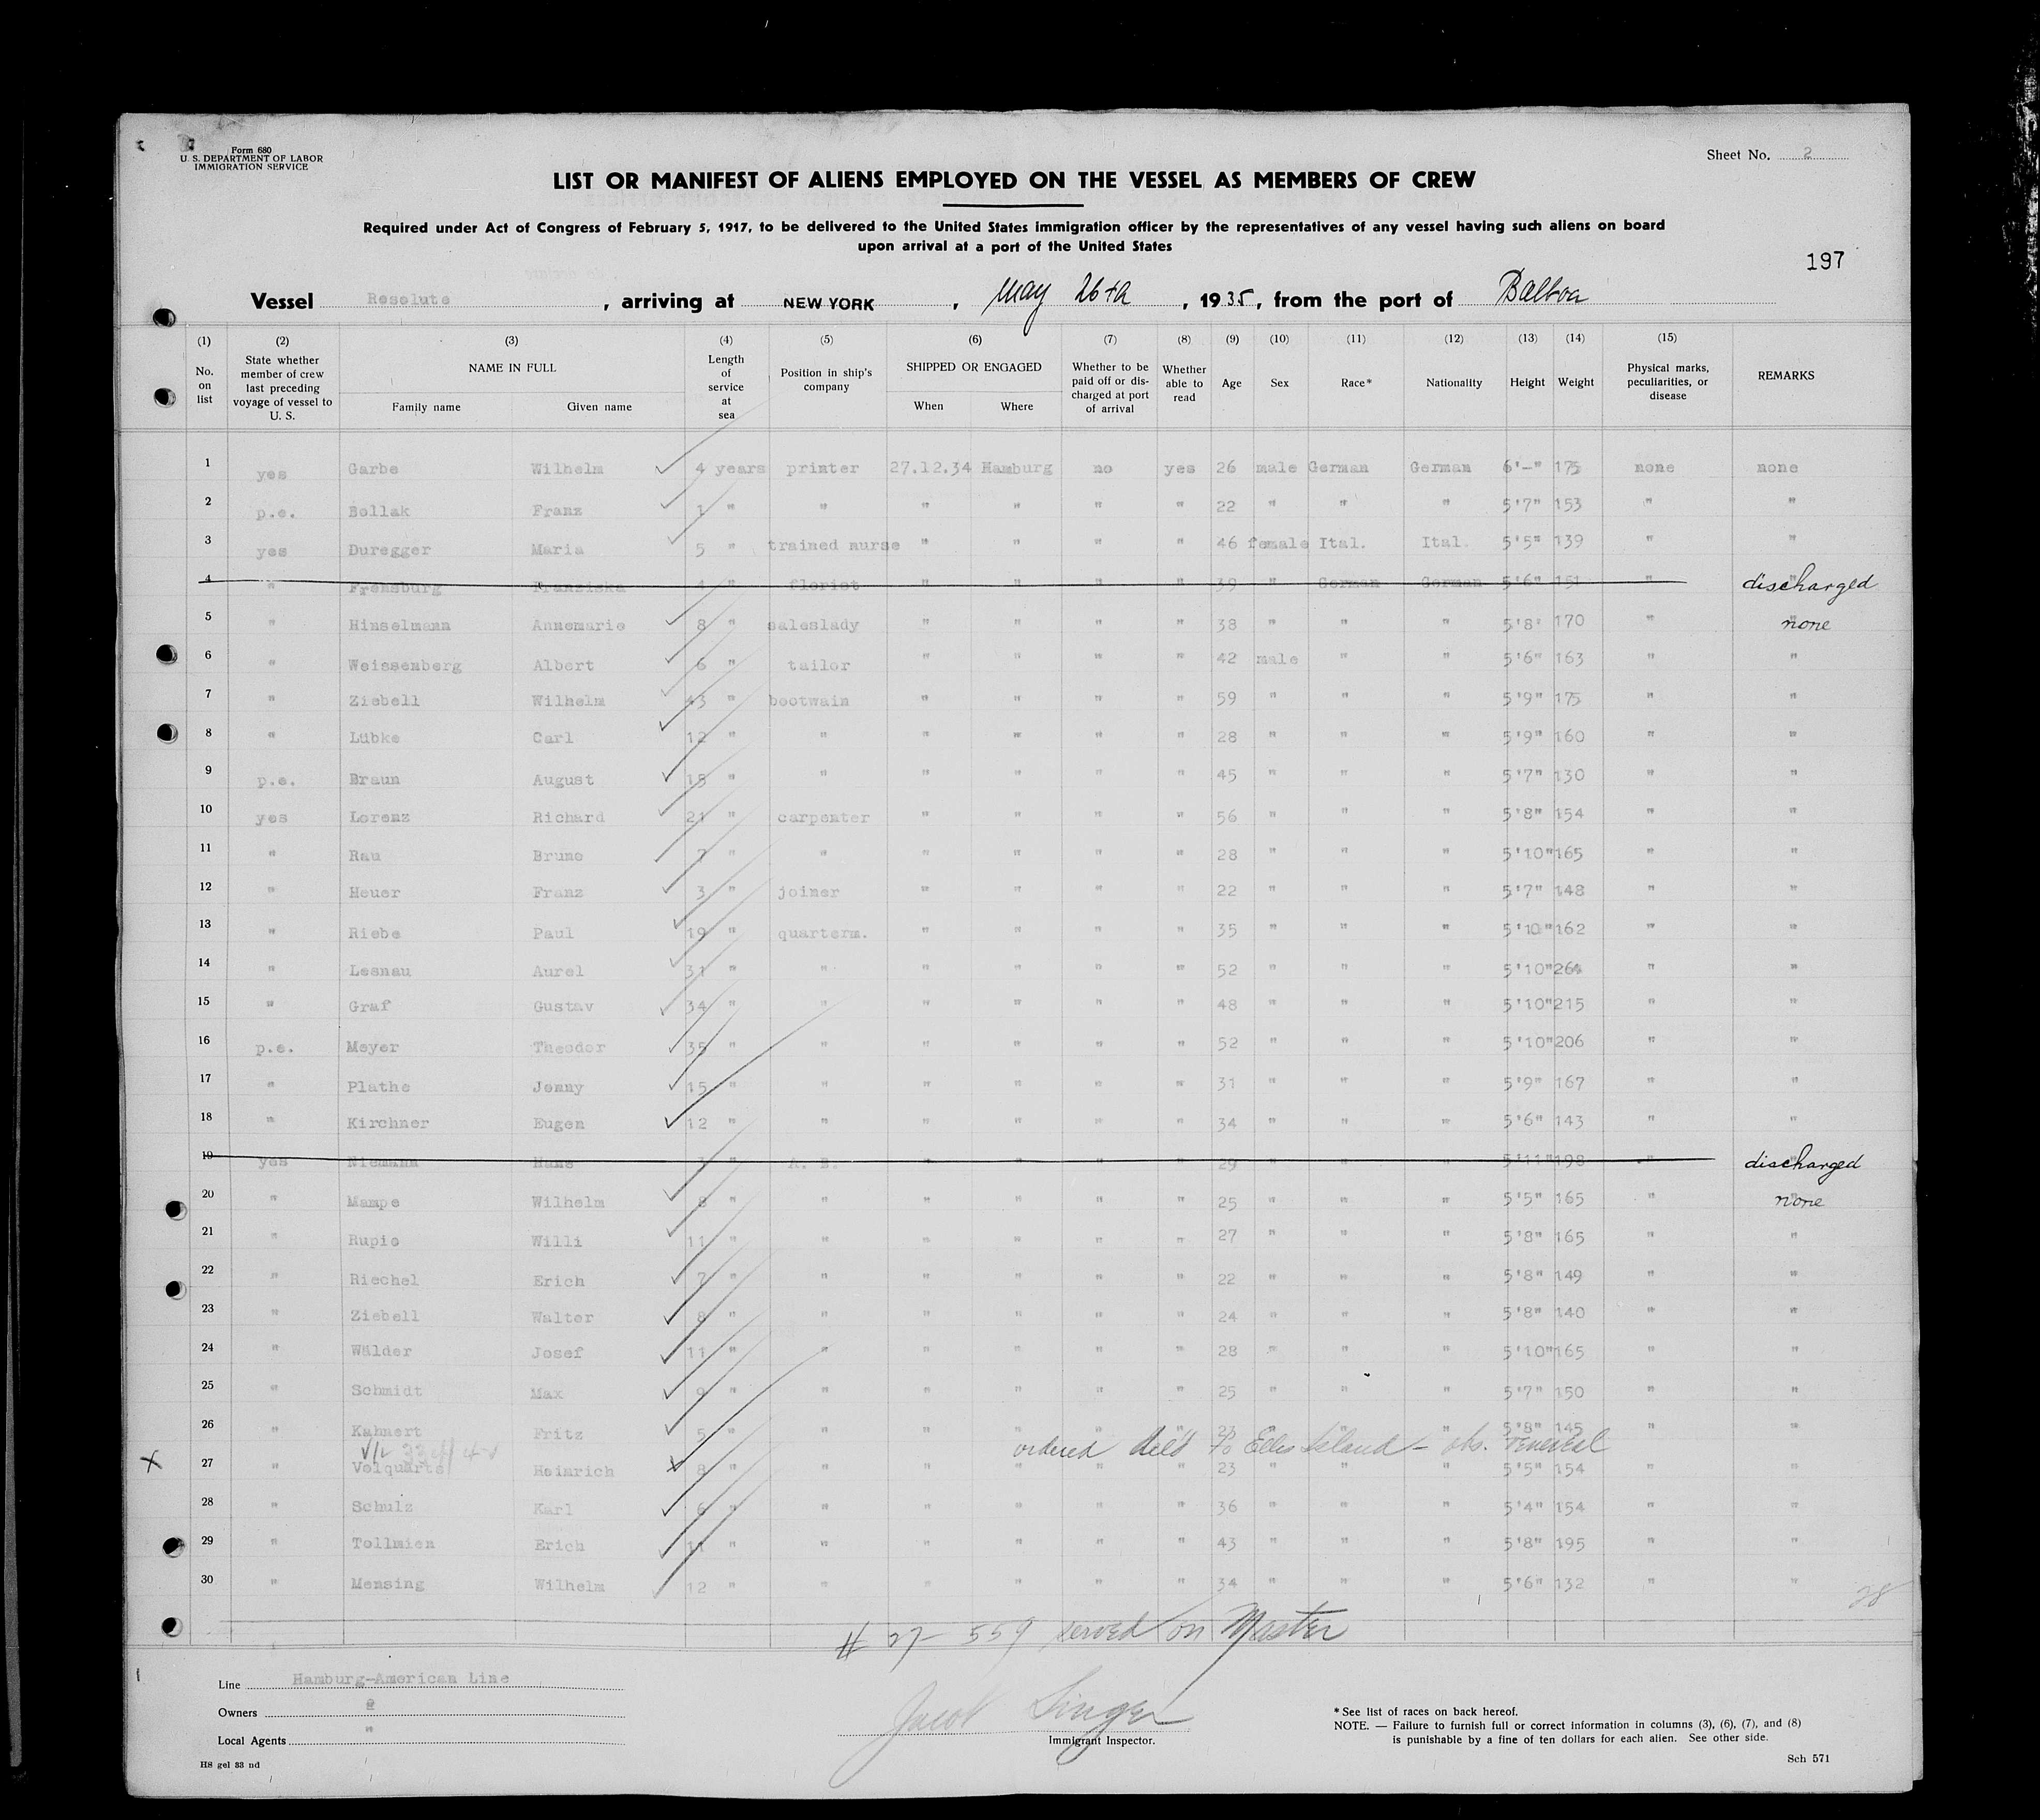 Form 680
U. S. DEPARTMENT OF LABOR
IMMIGRATION SERVICE
Sheet No. 2
LIST OR MANIFEST OF ALIENS EMPLOYED ON THE VESSEL AS MEMBERS OF CREW
Required under Act of Congress of February 5, 1917, to be delivered to the United States immigration officer by the representatives of any vessel having such aliens on board
upon arrival at a port of the United States
197
Vessel Resolute, arriving at NEW YORK, May 26th, 1935, from the port of Balboa
(1) (2) (3) (4) (5) (6) (7) (8) (9) (10) (11) (12) (13) (14) (15)
No. on list State whether member of crew last preceding voyage of vessel to U. S. NAME IN FULL Family name Given name Length of service at sea Position in ship's company SHIPPED OR ENGAGED When Where Whether to be paid off or discharged at port of arrival Whether able to read Age Sex Race* Nationality Height Weight Physical marks, peculiarities, or disease REMARKS
1 yes Garbe Wilhelm 4 years printer 27.12.34 Hamburg no yes 26 male German German 6'-" 175 none none
2 p.e. Bollak Franz 1 " " " " " " 22 " " " 5'7" 153 " "
3 yes Duregger Maria 5 " trained nurse " " " " 46 female Ital. Ital. 5'5" 139 " "
4 " Fremsburg Franziska 4 " florist " " " " 39 " German German 5'6" 151 " discharged
5 " Hinselmann Annemarie 8 " saleslady " " " " 38 " " " 5'8" 170 " none
6 " Weissenberg Albert 6 " tailor " " " " 42 male " " 5'6" 163 " "
7 " Ziebell Wilhelm 43 " bootwain " " " " 59 " " " 5'9" 175 " "
8 " Lübke Carl 12 " " " " " " 28 " " " 5'9" 160 " "
9 p.e. Braun August 15 " " " " " " 45 " " " 5'7" 130 " "
10 yes Lorenz Richard 21 " carpenter " " " " 56 " " " 5'8" 154 " "
11 " Rau Bruno 7 " " " " " " 28 " " " 5'10" 165 " "
12 " Heuer Franz 3 " joiner " " " " 22 " " " 5'7" 148 " "
13 " Riebe Paul 19 " quarterm. " " " " 35 " " " 5'10" 162 " "
14 " Lesnau Aurel 31 " " " " " " 52 " " " 5'10" 264 " "
15 " Graf Gustav 34 " " " " " " 48 " " " 5'10" 215 " "
16 p.e. Meyer Theodor 35 " " " " " " 52 " " " 5'10" 206 " "
17 " Plathe Jonny 15 " " " " " " 31 " " " 5'9" 167 " "
18 " Kirchner Eugen 12 " " " " " " 34 " " " 5'6" 143 " "
19 yes Niemann Hans " A. B. " " " " 29 " " " 5'11" 198 " discharged
20 " Mampe Wilhelm 8 " " " " " " 25 " " " 5'5" 165 " none
21 " Rupio Willi 11 " " " " " " 27 " " " 5'8" 165 " "
22 " Riechel Erich 7 " " " " " " 22 " " " 5'8" 149 " "
23 " Ziebell Walter 8 " " " " " " 24 " " " 5'8" 140 " "
24 " Wälder Josef 11 " " " " " " 28 " " " 5'10" 165 " "
25 " Schmidt Max 9 " " " " " " 25 " " " 5'7" 150 " "
26 " Kahnert Fritz 5 " " " " " " 23 " " " 5'8" 145 " "
ordered del'd to Ellis Island - obs. venereal
X 27 " Volquarts Heinrich 8 " " " " " " 23 " " " 5'5" 154 " "
28 " Schulz Karl 6 " " " " " " 36 " " " 5'4" 154 " "
29 " Tollmien Erich 11 " " " " " " 43 " " " 5'8" 195 " "
30 " Mensing Wilhelm 12 " " " " " " 34 " " " 5'6" 132 " "
28
# 27- 559 served on Master
Line Hamburg-American Line
Owners "
Local Agents "
Jacob Singer
Immigrant Inspector.
* See list of races on back hereof.
NOTE. — Failure to furnish full or correct information in columns (3), (6), (7), and (8)
is punishable by a fine of ten dollars for each alien. See other side.
HS gel 33 nd
Sch 571